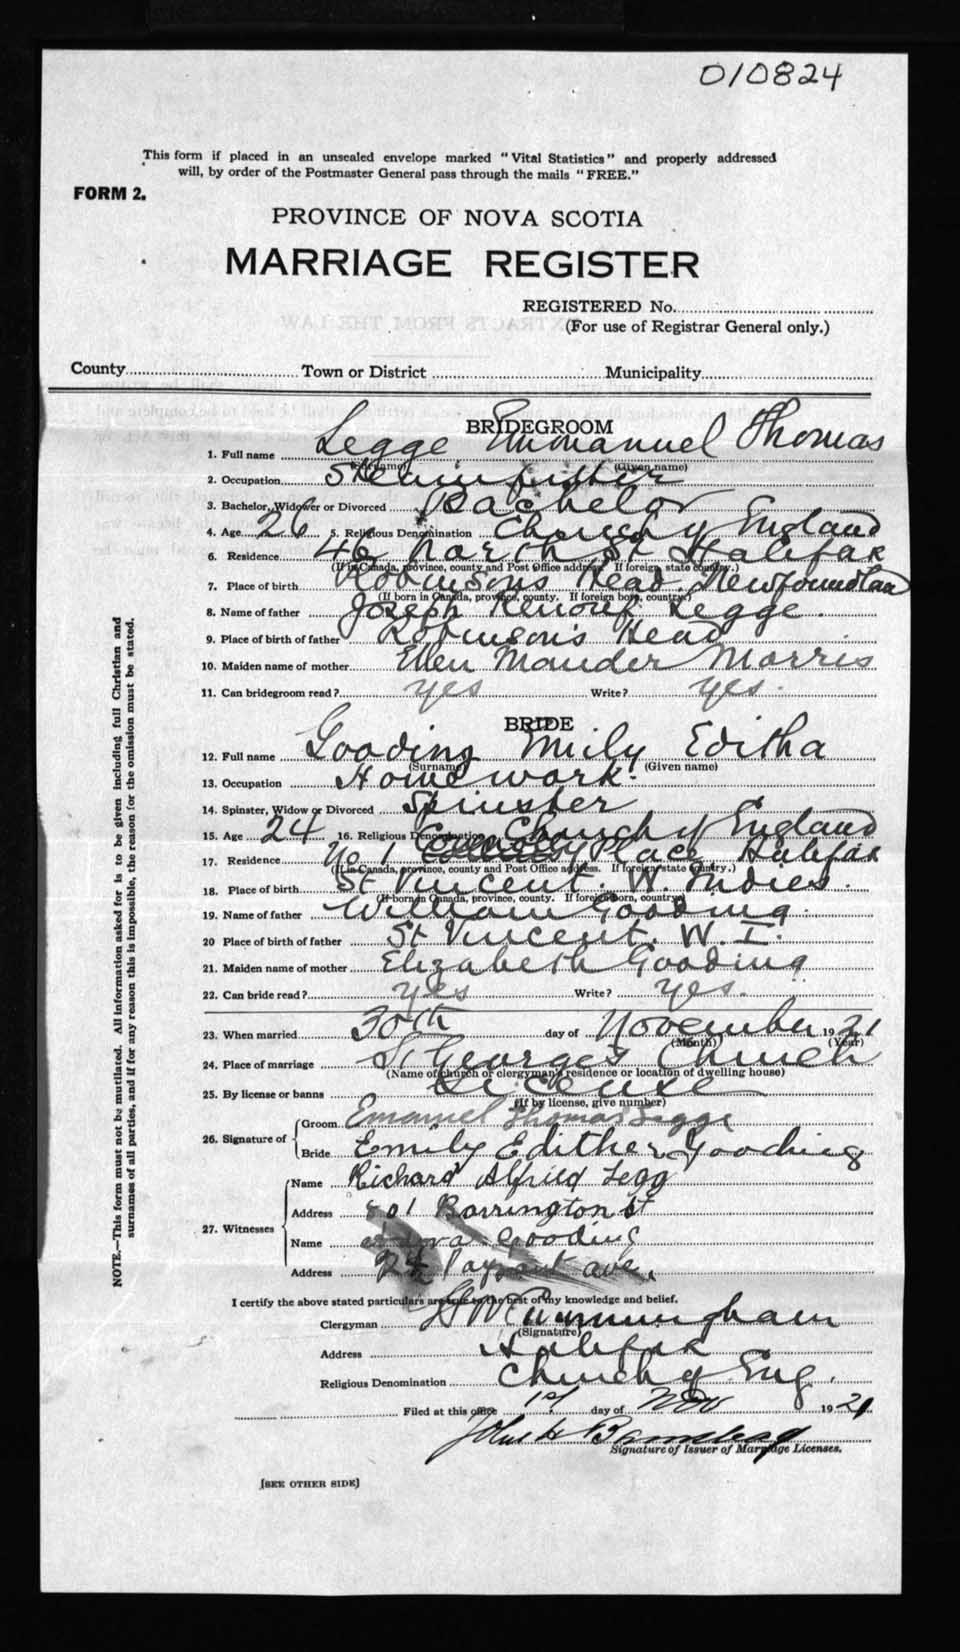 010824
This form if placed in an unsealed envelope marked "Vital Statistics" and properly addressed
will, by order of the Postmaster General pass through the mails "FREE."
FORM 2.
PROVINCE OF NOVA SCOTIA
MARRIAGE REGISTER
REGISTERED No.
(For use of Registrar General only.)
County Town or District Municipality
BRIDEGROOM
1. Full name Legge Emmanuel Thomas
(Surname) (Given name)
2. Occupation Steamfitter
3. Bachelor, Widower or Divorced Bachelor
4. Age 26 5. Religious Denomination Church of England
6. Residence 46 North St Halifax
(If in Canada, province, county and Post Office address. If foreign, state country.)
7. Place of birth Robinsons Head Newfoundland
(If born in Canada, province, county. If foreign born, country)
8. Name of father Joseph Renouf Legge
9. Place of birth of father Robinson's Head
10. Maiden name of mother Ellen Mander Morris
11. Can bridegroom read? yes Write? yes.
BRIDE
12. Full name Gooding Emily Editha
(Surname) (Given name)
13. Occupation Home work.
14. Spinster, Widow or Divorced Spinster
15. Age 24 16. Religious Denomination Church of England
17. Residence No 1 Place Halifax
(If in Canada, province, county and Post Office address. If foreign, state country.)
18. Place of birth St Vincent. W. Indies.
(If born in Canada, province, county. If foreign born, country)
19. Name of father William Gooding.
20 Place of birth of father St Vincent. W. I.
21. Maiden name of mother Elizabeth Gooding
22. Can bride read? yes Write? yes.
23. When married 30th day of November 1921
(Month) (Year)
24. Place of marriage St George's Church
(Name of church or clergyman's residence or location of dwelling house)
25. By license or banns License
(If by license, give number)
26. Signature of Groom Emanuel Thomas Legge
Bride Emily Edither Gooding
27. Witnesses Name Richard Alfred Legg
Address 801 Barrington St
Name Gooding
Address 24 ave,
I certify the above stated particulars are true to the best of my knowledge and belief.
Clergyman Cunningham
(Signature)
Address Halifax
Religious Denomination Church of Eng.
Filed at this office 1st day of Nov 1921
John H
Signature of Issuer of Marriage Licenses.
[SEE OTHER SIDE]
NOTE.—This form must not be mutilated. All information asked for is to be given including full Christian and
surnames of all parties, and if for any reason this is impossible, the reason for the omission must be stated.